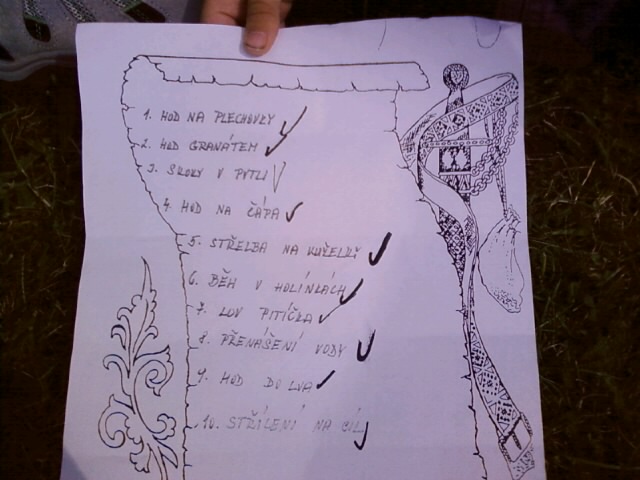 1. HOD NA PLECHOVKY
2. HOD GRANÁTEM
3. SKOKY V PYTLI
4. HOD NA ČÁPA
5. STŘELBA NA KUŽELKY
6. BĚH V HOLÍNKÁCH
7. LOV PITÍČKA
8. PŘENÁŠENÍ VODY
9. HOD DO LVA
10. STŘÍLENÍ NA CÍL